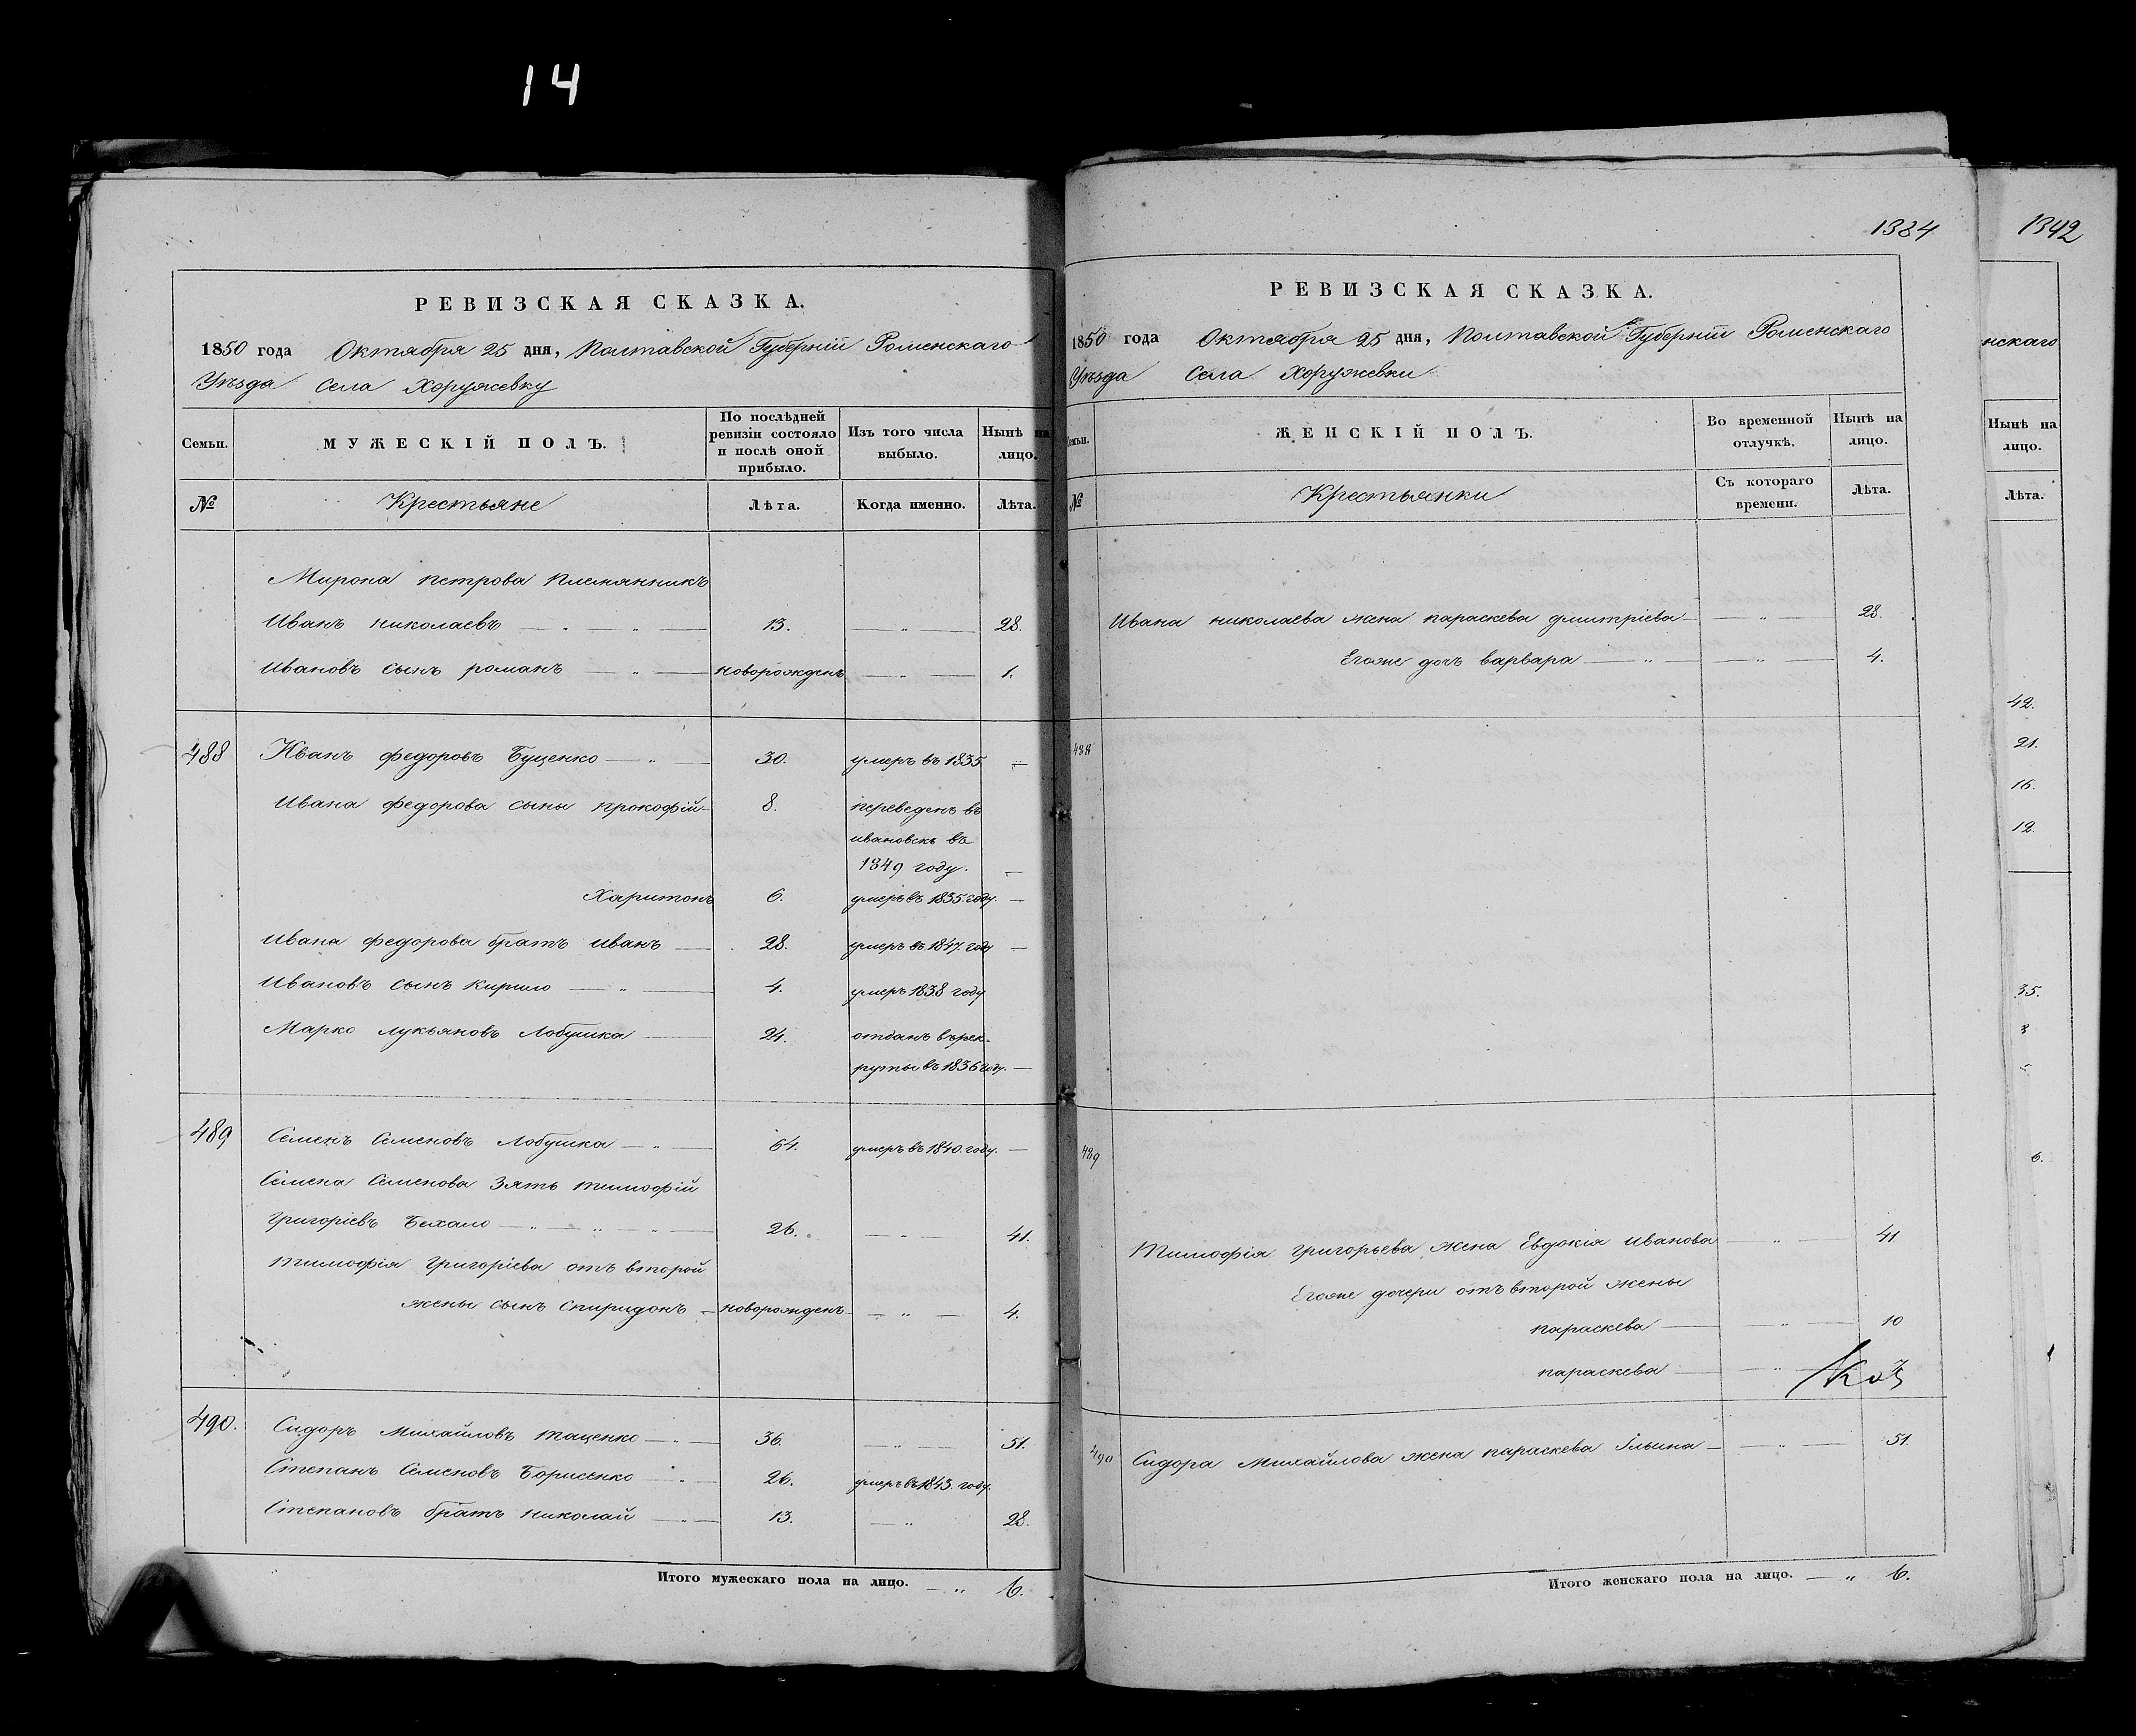 14
РЕВИЗСКАЯ СКАЗКА.
1850 года Октября 25 дня, Полтавской Губерніи Роменскаго
Уѣзда Села Хоружевку
Семьи. МУЖЕСКІЙ ПОЛЪ. По послѣдней ревизіи состояло и послѣ оной прибыло. Изъ того числа выбыло. Нынѣ на лицо.
№ Крестьяне Лѣта. Когда именно. Лѣта.
Мирона петрова племянникъ
Иванъ николаевъ — „ — „ — 13. — „ — 28.
Ивановъ сынъ романъ — „ — новорожденъ — „ — 1.
488 Иванъ федоровъ Буценко — „ — 30. умеръ въ 1835 —
Ивана федорова сыны прокофій — 8. переведенъ въ
ивановскъ въ
1849 году. —
Харитонъ 6. умеръ въ 1835. году. —
Ивана федорова братъ иванъ — 28. умеръ въ 1847. году —
Ивановъ сынъ кирило — „ — 4. умеръ 1838 году
Марко лукьяновъ Лобушка — 24. отданъ въ рек-
руты въ 1836 году. —
489 Семенъ Семеновъ Лобушка — „ — 64. умеръ въ 1840. году. —
Семена Семенова Зять тимофій
григоріевъ Бехало — „ — „ — „ — 26. — „ — 41.
тимофія григоріева отъ второй
жены сынъ спиридонъ — новорожденъ — „ — 4.
490. Сидоръ Михайловъ таценко — „ — 36. — „ — 51.
Степанъ Семеновъ Борисенко — „ — 26. умеръ въ 1843. году.
Степановъ братъ николай — „ — 13. — „ — 28.
Итого мужескаго пола на лицо. — „ 6.
1384
РЕВИЗСКАЯ СКАЗКА.
1850 года Октября 25 дня, Полтавской Губерніи Роменскаго
Уѣзда Села Хоружевки
Семьи. ЖЕНСКІЙ ПОЛЪ. Во временной отлучкѣ. Нынѣ на лицо.
№ Крестьянки Съ котораго времени. Лѣта.
Ивана николаева жена параскева дмитріева — — „ — 28.
Егоже дочь варвара — „ — — „ — 4.
488
489
Тимофія григорьева жена Евдокія иванова — „ — 41
Егоже дочери отъ второй жены
параскева — — „ — 10
параскева — — „ —
490 Сидора Михайлова жена параскева Ільина — — „ — 51.
Итого женскаго пола на лицо. — „ 6.
1342
нскаго
Нынѣ на лицо.
Лѣта.
42.
21.
16.
12.
35.
8
5
6.